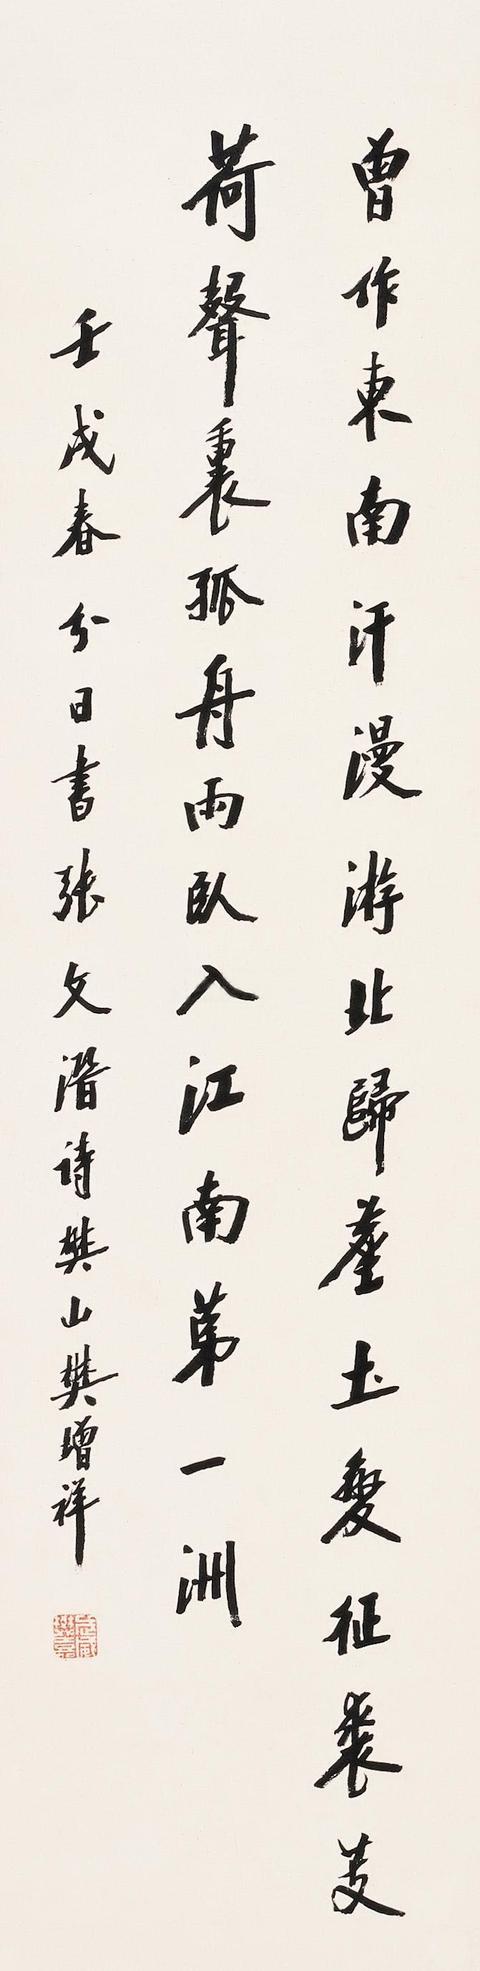 曾作東南汗漫游北歸塵土變征裘芰
荷聲裏孤舟雨臥入江南第一洲
壬戌春分日書張文潛詩樊山樊增祥